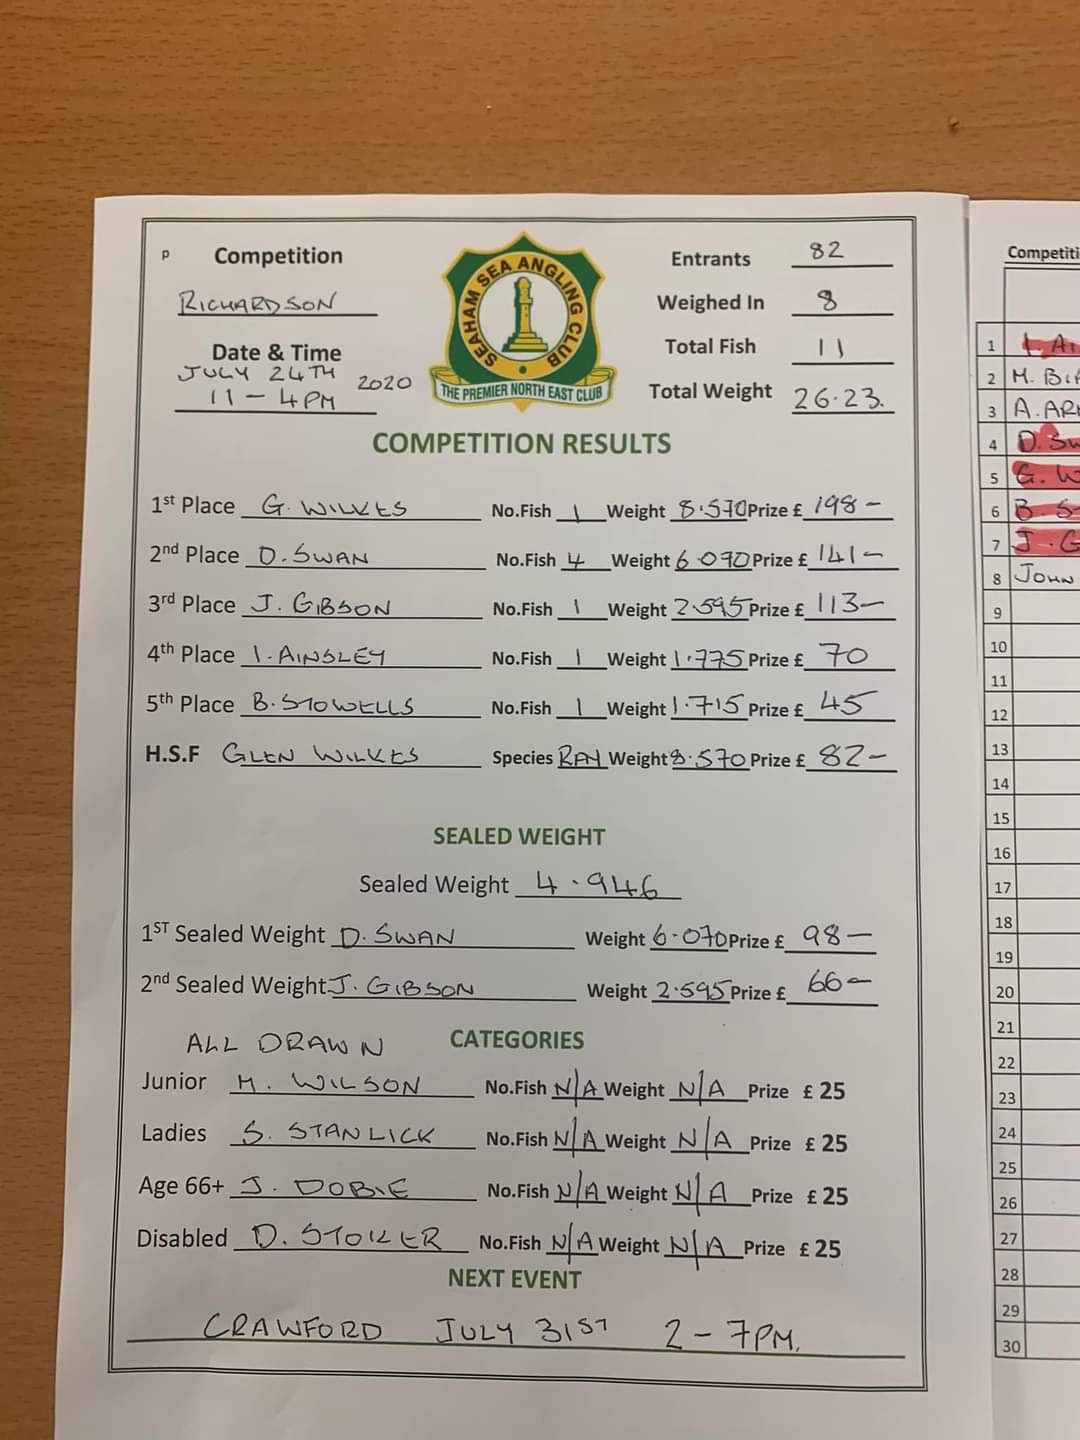 P Competition
RICHARDSON
Date & Time
JULY 24TH 2020
11 - 4PM
SEAHAM SEA ANGLING CLUB
THE PREMIER NORTH EAST CLUB
Entrants 82
Weighed In 8
Total Fish 11
Total Weight 26.23.
COMPETITION RESULTS
1st Place G. WILKES No.Fish 1 Weight 8.570 Prize £ 198-
2nd Place D. SWAN No.Fish 4 Weight 6.070 Prize £ 141-
3rd Place J. GIBSON No.Fish 1 Weight 2.595 Prize £ 113-
4th Place I. AINSLEY No.Fish 1 Weight 1.775 Prize £ 70
5th Place B. STOWELLS No.Fish 1 Weight 1.715 Prize £ 45
H.S.F GLEN WILKES Species RAY Weight 8.570 Prize £ 82-
SEALED WEIGHT
Sealed Weight 4.946
1ST Sealed Weight D. SWAN Weight 6.070 Prize £ 98-
2nd Sealed Weight J. GIBSON Weight 2.595 Prize £ 66-
ALL DRAWN CATEGORIES
Junior M. WILSON No.Fish N/A Weight N/A Prize £ 25
Ladies S. STANLICK No.Fish N/A Weight N/A Prize £ 25
Age 66+ J. DOBIE No.Fish N/A Weight N/A Prize £ 25
Disabled D. STOKER No.Fish N/A Weight N/A Prize £ 25
NEXT EVENT
CRAWFORD JULY 31ST 2 - 7PM.
Competiti
1
2 M.
3 A.
4 D.
5 G. W
6 B S
7 J. G
8 JOHN
9
10
11
12
13
14
15
16
17
18
19
20
21
22
23
24
25
26
27
28
29
30